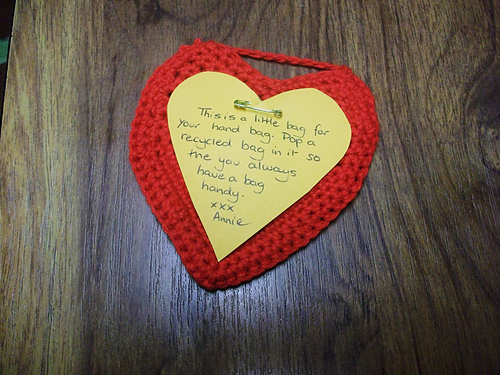 This is a little bag for
your hand bag. Pop a
recycled bag in it so
the you always
have a bag
handy.
xxx
Annie